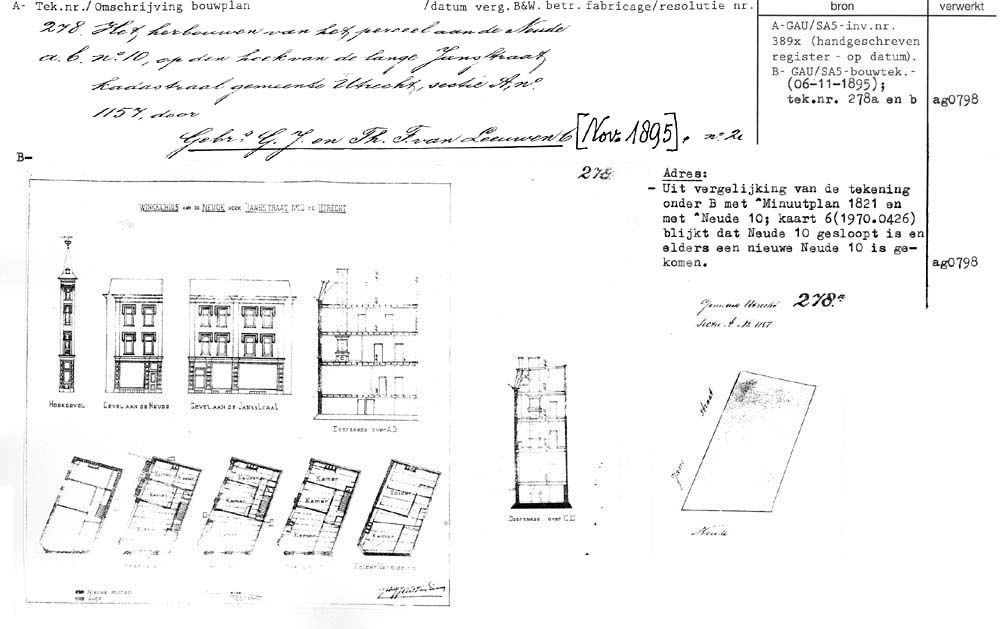 A- Tek.nr./ Omschrijving bouwplan /datum verg.B&W.betr.fabricage/resolutie nr. bron verwerkt
278. Het, herbouwen van het, perceel aan de Neude
a.b. nº 10, op den hoek van de lange Jansstraat,
kadastraal gemeente Utrecht, sectie A, nº.
1157, door
Gebrs. G. J. en Th. F. van Leeuwen [Nov. 1895].
A-GAU/SA5-inv.nr.
389x (handgeschreven
register - op datum).
B- GAU/SA5-bouwtek.-
(06-11-1895);
tek.nr. 278a en b ag0798
B-
278.
Adres:
- Uit vergelijking van de tekening
onder B met ^Minuutplan 1821 en
met ^Neude 10; kaart 6(1970.0426)
blijkt dat Neude 10 gesloopt is en
elders een nieuwe Neude 10 is ge-
komen. ag0798
WINKELHUIS AAN DE NEUDE HOEK JANSSTRAAT Nº10 TE UTRECHT
HOEKGEVEL
GEVEL AAN DE NEUDE
GEVEL AAN DE JANSSTRAAT
DOORSNEDE OVER A.B
Gemeente Utrecht 278.a
Sectie A. No 1157
DOORSNEDE OVER C.D
Jans straat
Neude
KAMER
KEUKEN
KAMER
KAMER
KAMER
ZOLDER
KAMER
ZOLDER VERDIEPING
NIEUWE MUREN